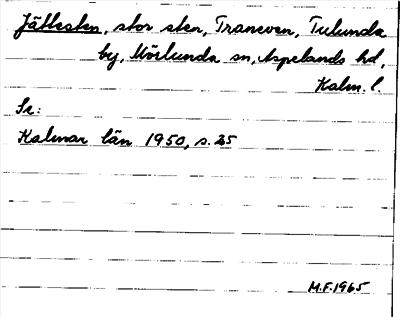 Jättesten, stor sten, Traneven, Tulunda
by, Mörlunda sn, Aspelands hd,
Kalm. l.
Se:
Kalmar län 1950, s. 25
M.F. 1965